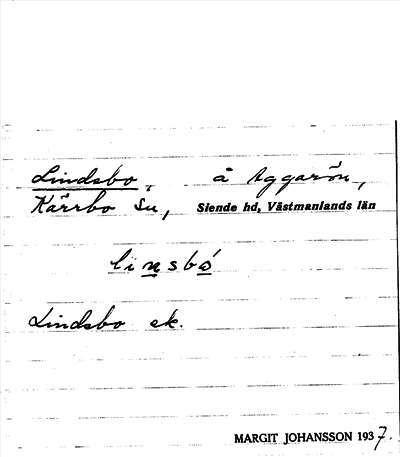 Lindsbo, å Aggarön,
Kärrbo sn, Siende hd, Västmanlands län
linsbó
Lindsbo ek.
MARGIT JOHANSSON 1937.